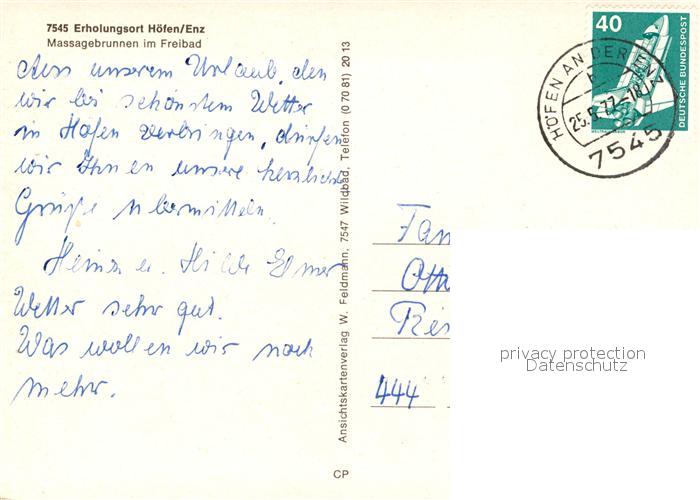 7545 Erholungsort Höfen/Enz
Massagebrunnen im Freibad
Aus unserem Urlaub, den
wir bei schönstem Wetter
in Höfen verbringen, dürfen
wir Ihnen unsere herzlichste
Grüße übermitteln.
Heinz u. Hilde
Wetter sehr gut.
Was wollen wir noch
mehr.
Ansichtskartenverlag W. Feldmann, 7547 Wildbad, Telefon (0 70 81) 20 13
CP
40
DEUTSCHE BUNDESPOST
HÖFEN AN DER ENZ
25.5.77-18
7545
Fam
Otto
444
privacy protection
Datenschutz